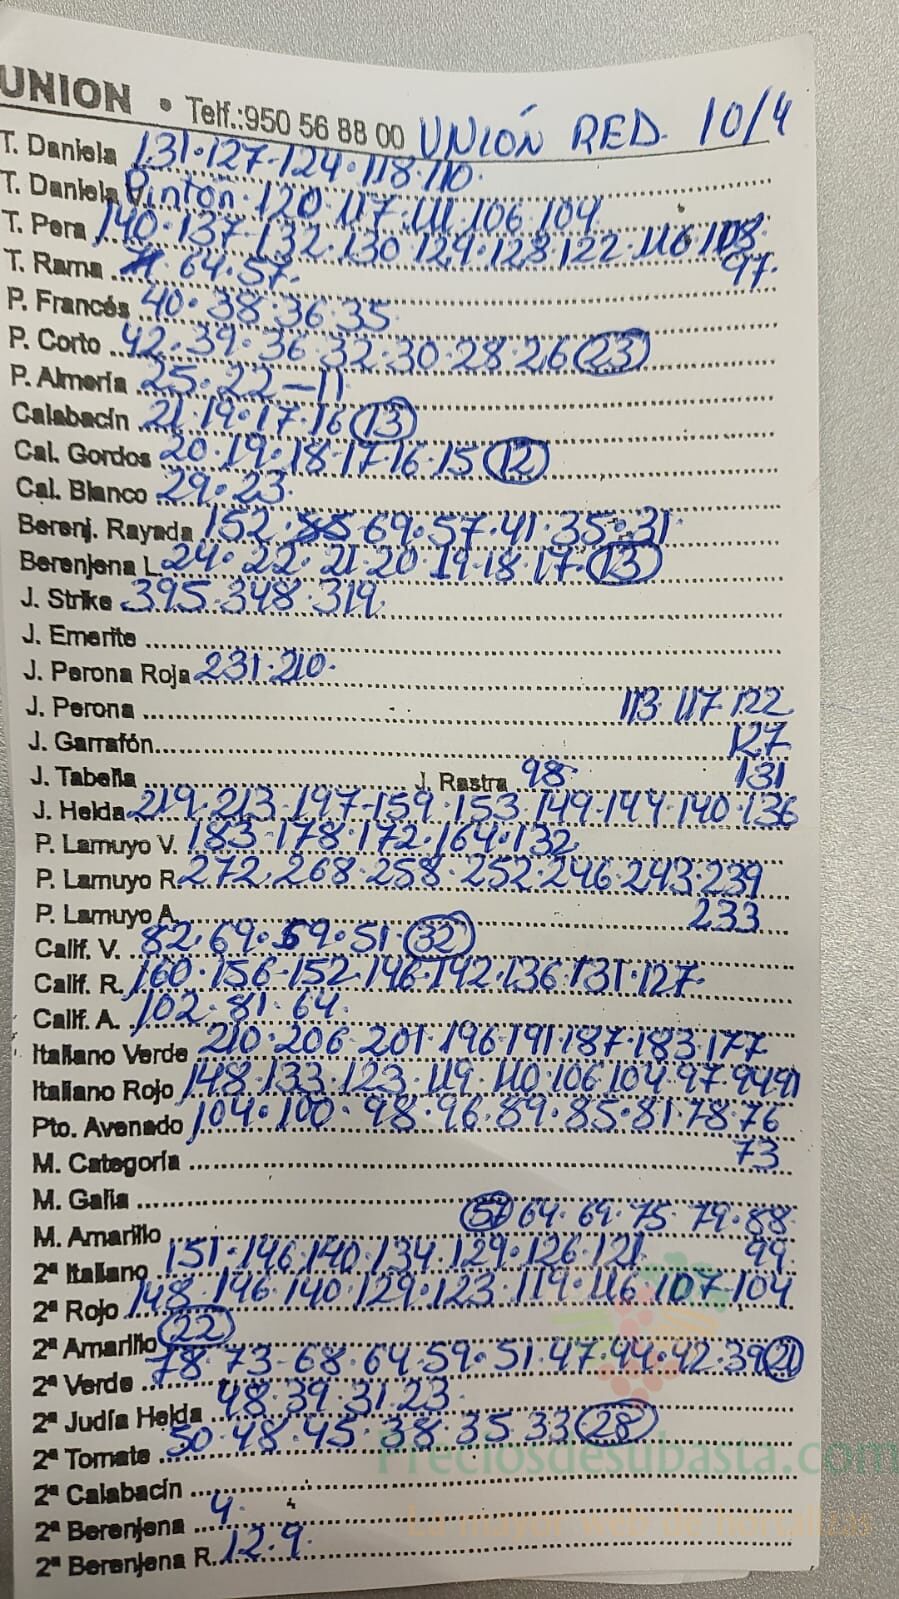 UNION • Telf.:950 56 88 00 UNIÓN RED. 10/4
T. Daniela 131·127-124·118·110.
T. Daniela V. Pintón·120·117·111·106·104
T. Pera 140·137-132·130·124·123·122·116·108·
T. Rama 64·57. 97.
P. Francés 40·38·36·35
P. Corto 42·39·36·32·30·28·26 (23)
P. Almería 25·22-11
Calabacín 21·19·17·16 (13)
Cal. Gordos 20·19·18-17-16·15 (12)
Cal. Blanco 29·23.
Berenj. Rayada 152·85 69·57·41·35·31·
Berenjena L. 24·22·21·20·19·18·17· (13)
J. Strike 395·348·319
J. Emerite
J. Perona Roja 231·210·
J. Perona 113 117 122
J. Garrafón 127
J. Tabella J. Rastra 98· 131
J. Helda 219·213·197-159·153·149·144·140·136
P. Lamuyo V. 183-178·172·164·132
P. Lamuyo R. 272·268·258·252·246·243·239
P. Lamuyo A. 233
Calif. V. 82·69·59·51· (32)
Calif. R. 160·156-152·146·142·136·131·127·
Calif. A. 102·81·64
Italiano Verde 210·206·201·196·191·187·183·177
Italiano Rojo 148·133·123·119·110·106·104·97·94 91
Pto. Avenado 104·100·98·96·89·85·81·78·76
M. Categoría 73
M. Galia
M. Amarillo (57) 64·69·75·79·88
2ª Italiano 151·146·140·134·129·126·121 99.
2ª Rojo 148·146·140·129·123·119·116·107·104
2ª Amarillo (22)
2ª Verde 78·73-68·64·59·51·47·44·42·39 (20)
2ª Judía Helda 48·39·31·23
2ª Tomate 50·48·45·38·35·33 (28)
Preciosdesubasta.com
2ª Calabacín
2ª Berenjena 4.
La mayor web de hortalizas
2ª Berenjena R. 12·9.